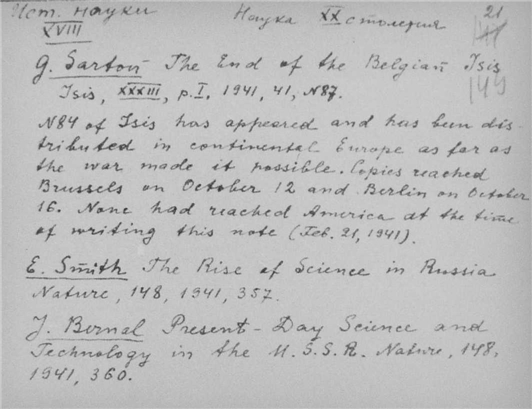 Ист. науки
XVIII
Наука XX столетия
21
149
G. Sarton The End of the Belgian Isis
Isis, XXXIII, p.I, 1941, 41, N87.
N84 of Isis has appeared and has been dis-
tributed in continental Europe as far as
the war made it possible. Copies reached
Brussels on October 12 and Berlin on October
16. None had reached America at the time
of writing this note (Feb. 21, 1941).
E. Smith The Rise of Science in Russia
Nature, 148, 1941, 357.
J. Bernal Present-Day Science and
Technology in the U.S.S.R. Nature, 148,
1941, 360.